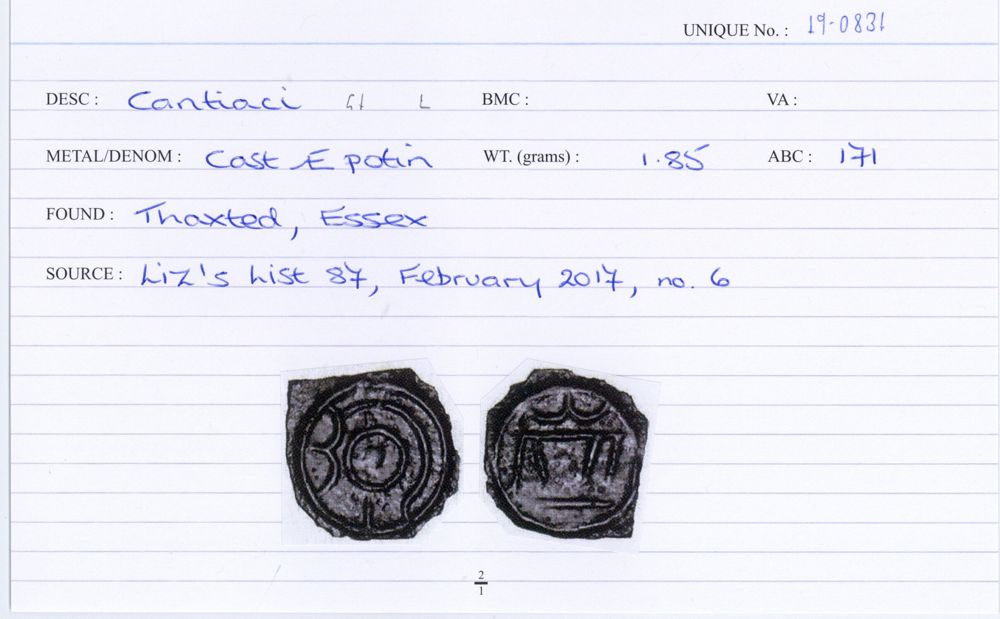 UNIQUE No. : 19-0831
DESC : Cantiaci G1 L BMC : VA :
METAL/DENOM : Cast Æ potin WT. (grams) : 1.85 ABC : 171
FOUND : Thaxted, Essex
SOURCE : Liz's List 87, February 2017, no. 6
2
1